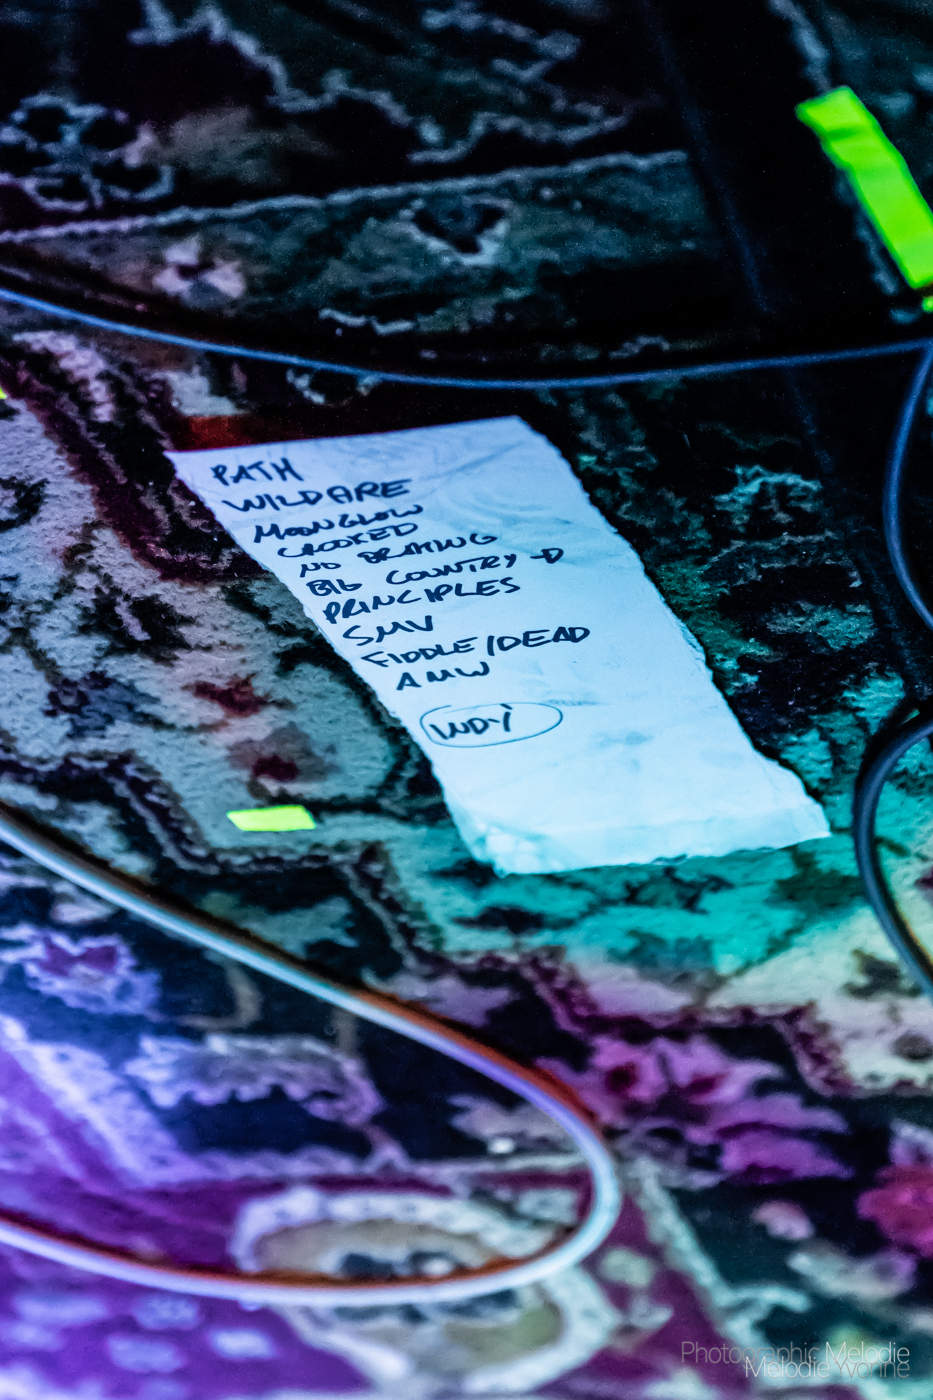 PATH
WILDFIRE
MOONGLOW
CROOKED
NO DRAMING
BIG COUNTRY -D
PRINCIPLES
SMV
FIDDLE/DEAD
AMW
INDY
Photographic Melodie
Melodie Yvonne